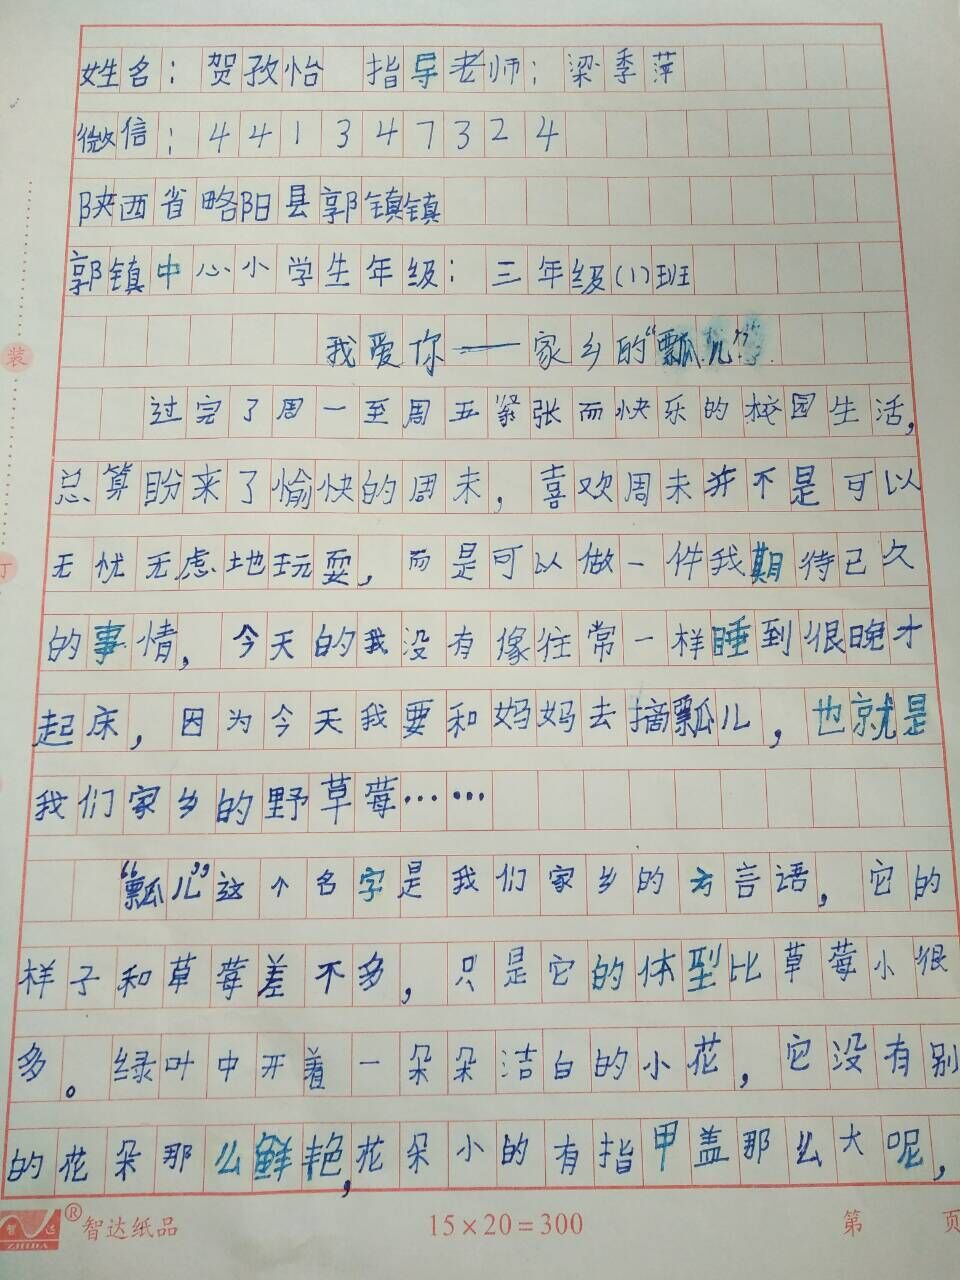 姓名：贺孜怡 指导老师：梁季萍
微信：441347324
陕西省略阳县郭镇镇
郭镇中心小学生年级：三年级(1)班
我爱你——家乡的“瓢儿”
过完了周一至周五紧张而快乐的校园生活，
总算盼来了愉快的周末，喜欢周末并不是可以
无忧无虑地玩耍，而是可以做一件我期待已久
的事情，今天的我没有像往常一样睡到很晚才
起床，因为今天我要和妈妈去摘瓢儿，也就是
我们家乡的野草莓……
“瓢儿”这个名字是我们家乡的方言语，它的
样子和草莓差不多，只是它的体型比草莓小很
多。绿叶中开着一朵朵洁白的小花，它没有别
的花朵那么鲜艳，花朵小的有指甲盖那么大呢，
装
智达 ZHIDA ® 智达纸品 15×20=300 第 页